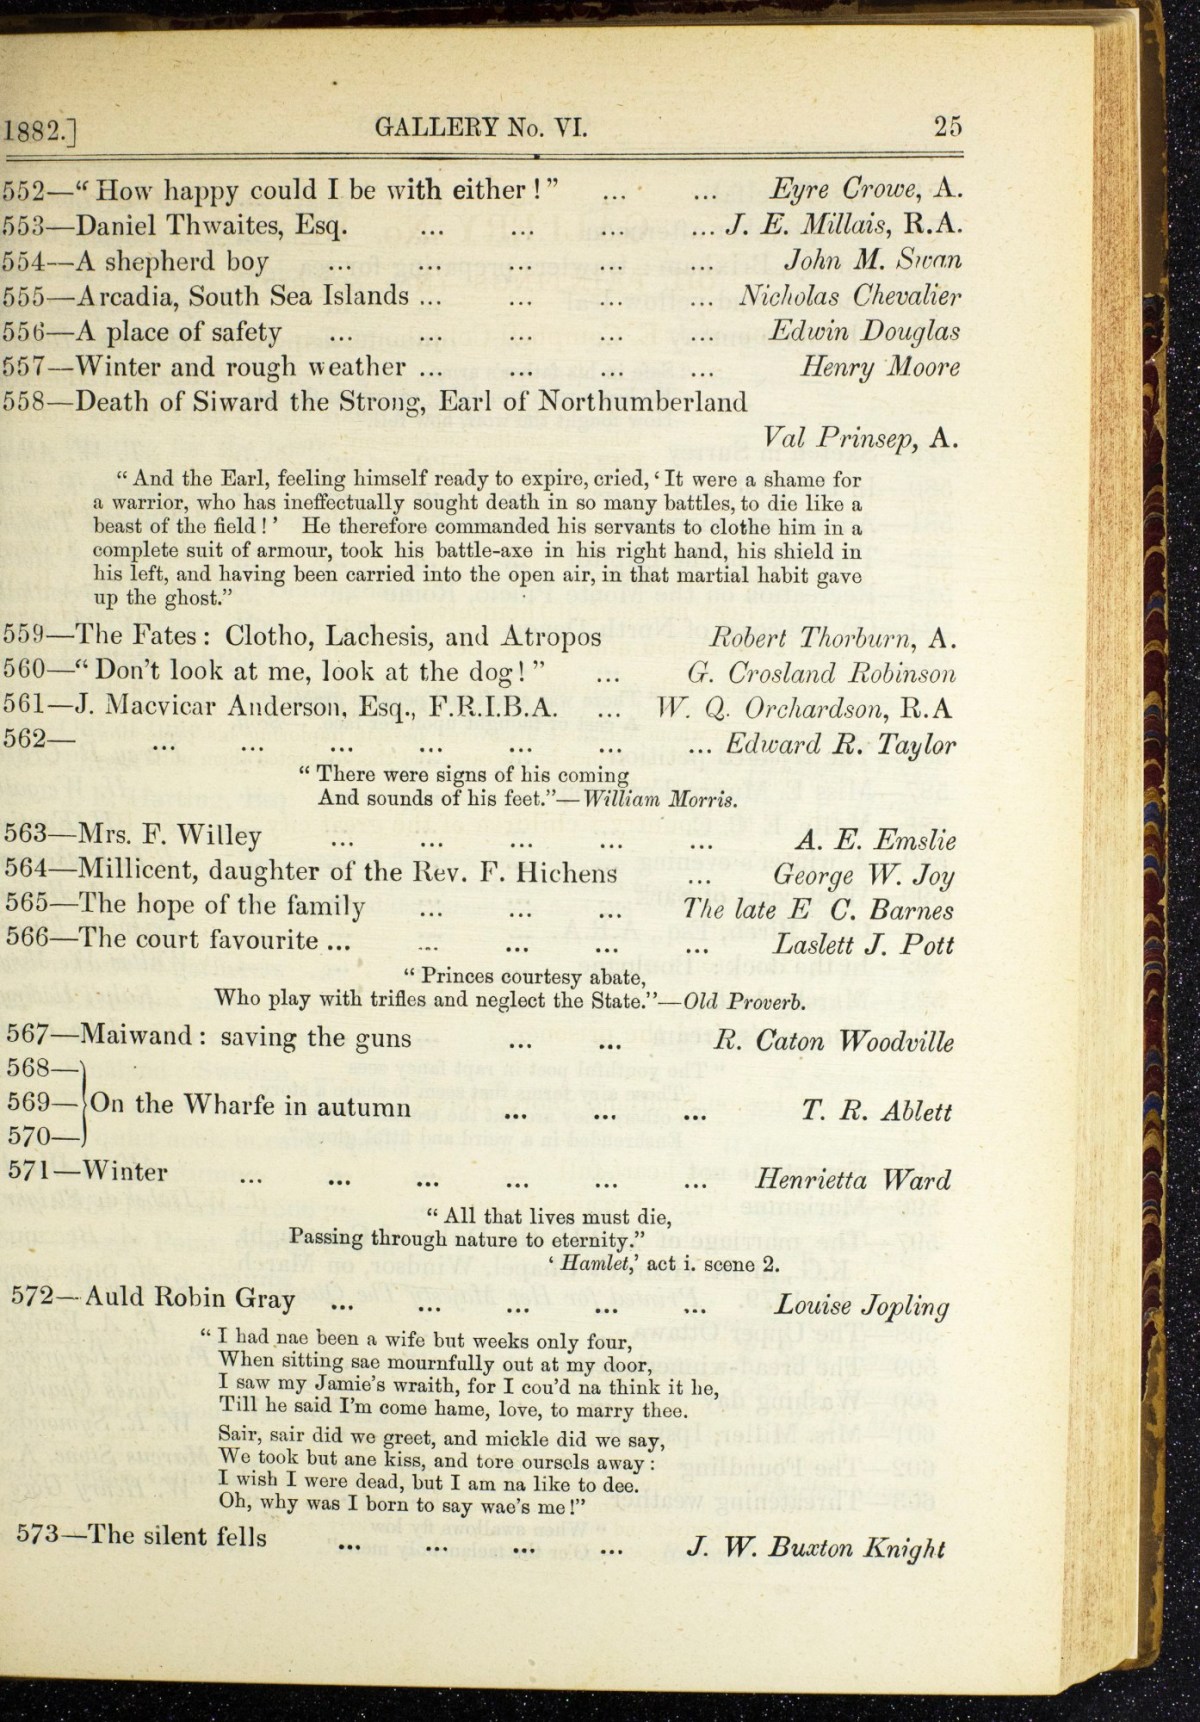 1882.] GALLERY No. VI. 25
552—“ How happy could I be with either ! ” ... ... Eyre Crowe, A.
553—Daniel Thwaites, Esq. ... ... ... ... J. E. Millais, R.A.
554—A shepherd boy ... ... ... ... ... John M. Swan
555—Arcadia, South Sea Islands ... ... ... ... Nicholas Chevalier
556—A place of safety ... ... ... ... ... Edwin Douglas
557—Winter and rough weather ... ... ... ... Henry Moore
558—Death of Siward the Strong, Earl of Northumberland
Val Prinsep, A.
“ And the Earl, feeling himself ready to expire, cried, ‘ It were a shame for
a warrior, who has ineffectually sought death in so many battles, to die like a
beast of the field ! ’ He therefore commanded his servants to clothe him in a
complete suit of armour, took his battle-axe in his right hand, his shield in
his left, and having been carried into the open air, in that martial habit gave
up the ghost.”
559—The Fates : Clotho, Lachesis, and Atropos Robert Thorburn, A.
560—“ Don’t look at me, look at the dog! ” ... G. Crosland Robinson
561—J. Macvicar Anderson, Esq., F.R.I.B.A. ... W. Q. Orchardson, R.A
562— ... ... ... ... ... ... ... Edward R. Taylor
“ There were signs of his coming
And sounds of his feet.”—William Morris.
563—Mrs. F. Willey ... ... ... ... ... A. E. Emslie
564—Millicent, daughter of the Rev. F. Hichens ... George W. Joy
565—The hope of the family ... ... ... The late E C. Barnes
566—The court favourite ... ... ... ... ... Laslett J. Pott
“ Princes courtesy abate,
Who play with trifles and neglect the State.”—Old Proverb.
567—Maiwand : saving the guns ... ... R. Caton Woodville
568—
569—}On the Wharfe in autumn ... ... ... T. R. Ablett
570—
571—Winter ... ... ... ... ... ... Henrietta Ward
“ All that lives must die,
Passing through nature to eternity.”
‘ Hamlet,’ act i. scene 2.
572—Auld Robin Gray ... ... ... ... ... Louise Jopling
“ I had nae been a wife but weeks only four,
When sitting sae mournfully out at my door,
I saw my Jamie’s wraith, for I cou’d na think it he,
Till he said I’m come hame, love, to marry thee.
Sair, sair did we greet, and mickle did we say,
We took but ane kiss, and tore oursels away :
I wish I were dead, but I am na like to dee.
Oh, why was I born to say wae’s me !”
573—The silent fells ... ... ... ... J. W. Buxton Knight